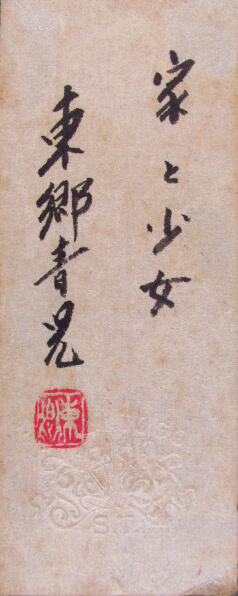 家と少女
東郷青児
東郷
S.T.